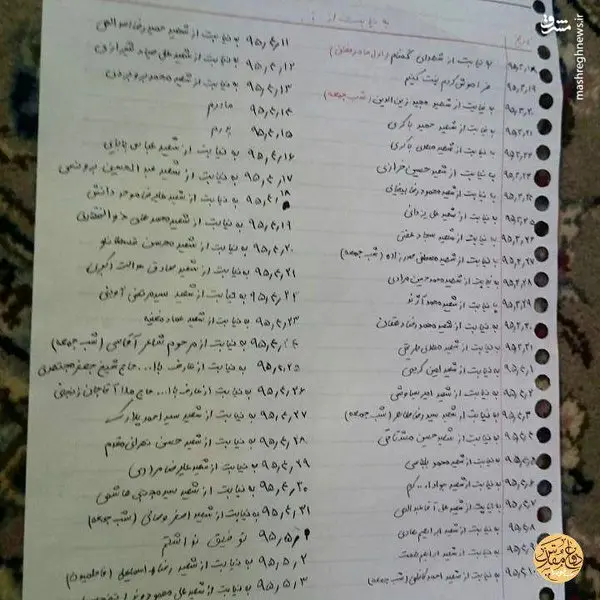 به نیابت از :
تاریخ
۹۵,۳,۱۸ به نیابت از شهدای گمنام (اول ماه رمضان)
۹۵,۳,۱۹ فراموش کردم نیت کنم
۹۵,۳,۲۰ به نیابت از شهید مجید زین الدین (شب جمعه)
۹۵,۳,۲۱ به نیابت از شهید حمید باکری
۹۵,۳,۲۲ به نیابت از شهید مهدی باکری
۹۵,۳,۲۳ به نیابت از شهید حسین خرازی
۹۵,۳,۲۴ به نیابت از شهید محمودرضا بیضایی
۹۵,۳,۲۵ به نیابت از شهید علی یزدانی
۹۵,۳,۲۶ به نیابت از شهید سجاد عفتی
۹۵,۳,۲۷ به نیابت از شهید مصطفی صدرزاده (شب جمعه)
۹۵,۳,۲۸ به نیابت از شهید محمدحسین مرادی
۹۵,۳,۲۹ به نیابت از شهید محمد آژند
۹۵,۳,۳۰ به نیابت از شهید محمدرضا دهقان
۹۵,۳,۳۱ به نیابت از شهید مهدی طریقی
۹۵,۴,۱ به نیابت از شهید امین کریمی
۹۵,۴,۲ به نیابت از شهید امیر سیاوشی
۹۵,۴,۳ به نیابت از شهید سید رضا طاهر (شب جمعه)
۹۵,۴,۴ به نیابت از شهید حسین مشتاقی
۹۵,۴,۵ به نیابت از شهید محمد بلباسی
۹۵,۴,۶ به نیابت از شهید جواد ا... کرم
۹۵,۴,۷ به نیابت از شهید علی آقا عبدالهی
۹۵,۴,۸ به نیابت از شهید ابراهیم هادی
۹۵,۴,۹ به نیابت از شهید ابراهیم همت
۹۵,۴,۱۰ به نیابت از شهید احمد کاظمی (شب جمعه)
۹۵,۴,۱۱ به نیابت از شهید حمیدرضا اسداللهی
۹۵,۴,۱۲ به نیابت از شهید علی صیاد شیرازی
۹۵,۴,۱۳ به نیابت از شهید محمد بروجردی
۹۵,۴,۱۴ مادرم
۹۵,۴,۱۵ پدرم
۹۵,۴,۱۶ به نیابت از شهید عباس بابایی
۹۵,۴,۱۷ به نیابت از شهید عبدالحسین برونسی
۹۵,۴,۱۸ به نیابت از شهید علیرضا موحد دانش
۹۵,۴,۱۹ به نیابت از شهید محمد علی ذوالفقاری
۹۵,۴,۲۰ به نیابت از شهید محسن
۹۵,۴,۲۱ به نیابت از شهید صادق عدالت اکبری
۹۵,۴,۲۲ به نیابت از شهید سید مرتضی آوینی
۹۵,۴,۲۳ به نیابت از شهید عماد مغنیه
۹۵,۴,۲۴ به نیابت از مرحوم شاعر آقاسی (شب جمعه)
۹۵,۴,۲۵ به نیابت از عارف با... حاج شیخ جعفر مجتهدی
۹۵,۴,۲۶ به نیابت از عارف با... حاج ملا آقاجان زنجانی
۹۵,۴,۲۷ به نیابت از شهید سید احمد پلارک
۹۵,۴,۲۸ به نیابت از شهید حسن تهرانی مقدم
۹۵,۴,۲۹ به نیابت از شهید علیرضا مرادی
۹۵,۴,۳۰ به نیابت از شهید سید مجتبی هاشمی
۹۵,۴,۳۱ به نیابت از شهید اصغر وصالی (شب جمعه)
۹۵,۵,۱ توفیق نداشتم
۹۵,۵,۲ به نیابت از شهید رضا اسماعیلی (فاطمیون)
۹۵,۵,۳ به نیابت از شهید علی محمود وند
مشرق
mashreghnews.ir
دفاع مقدس